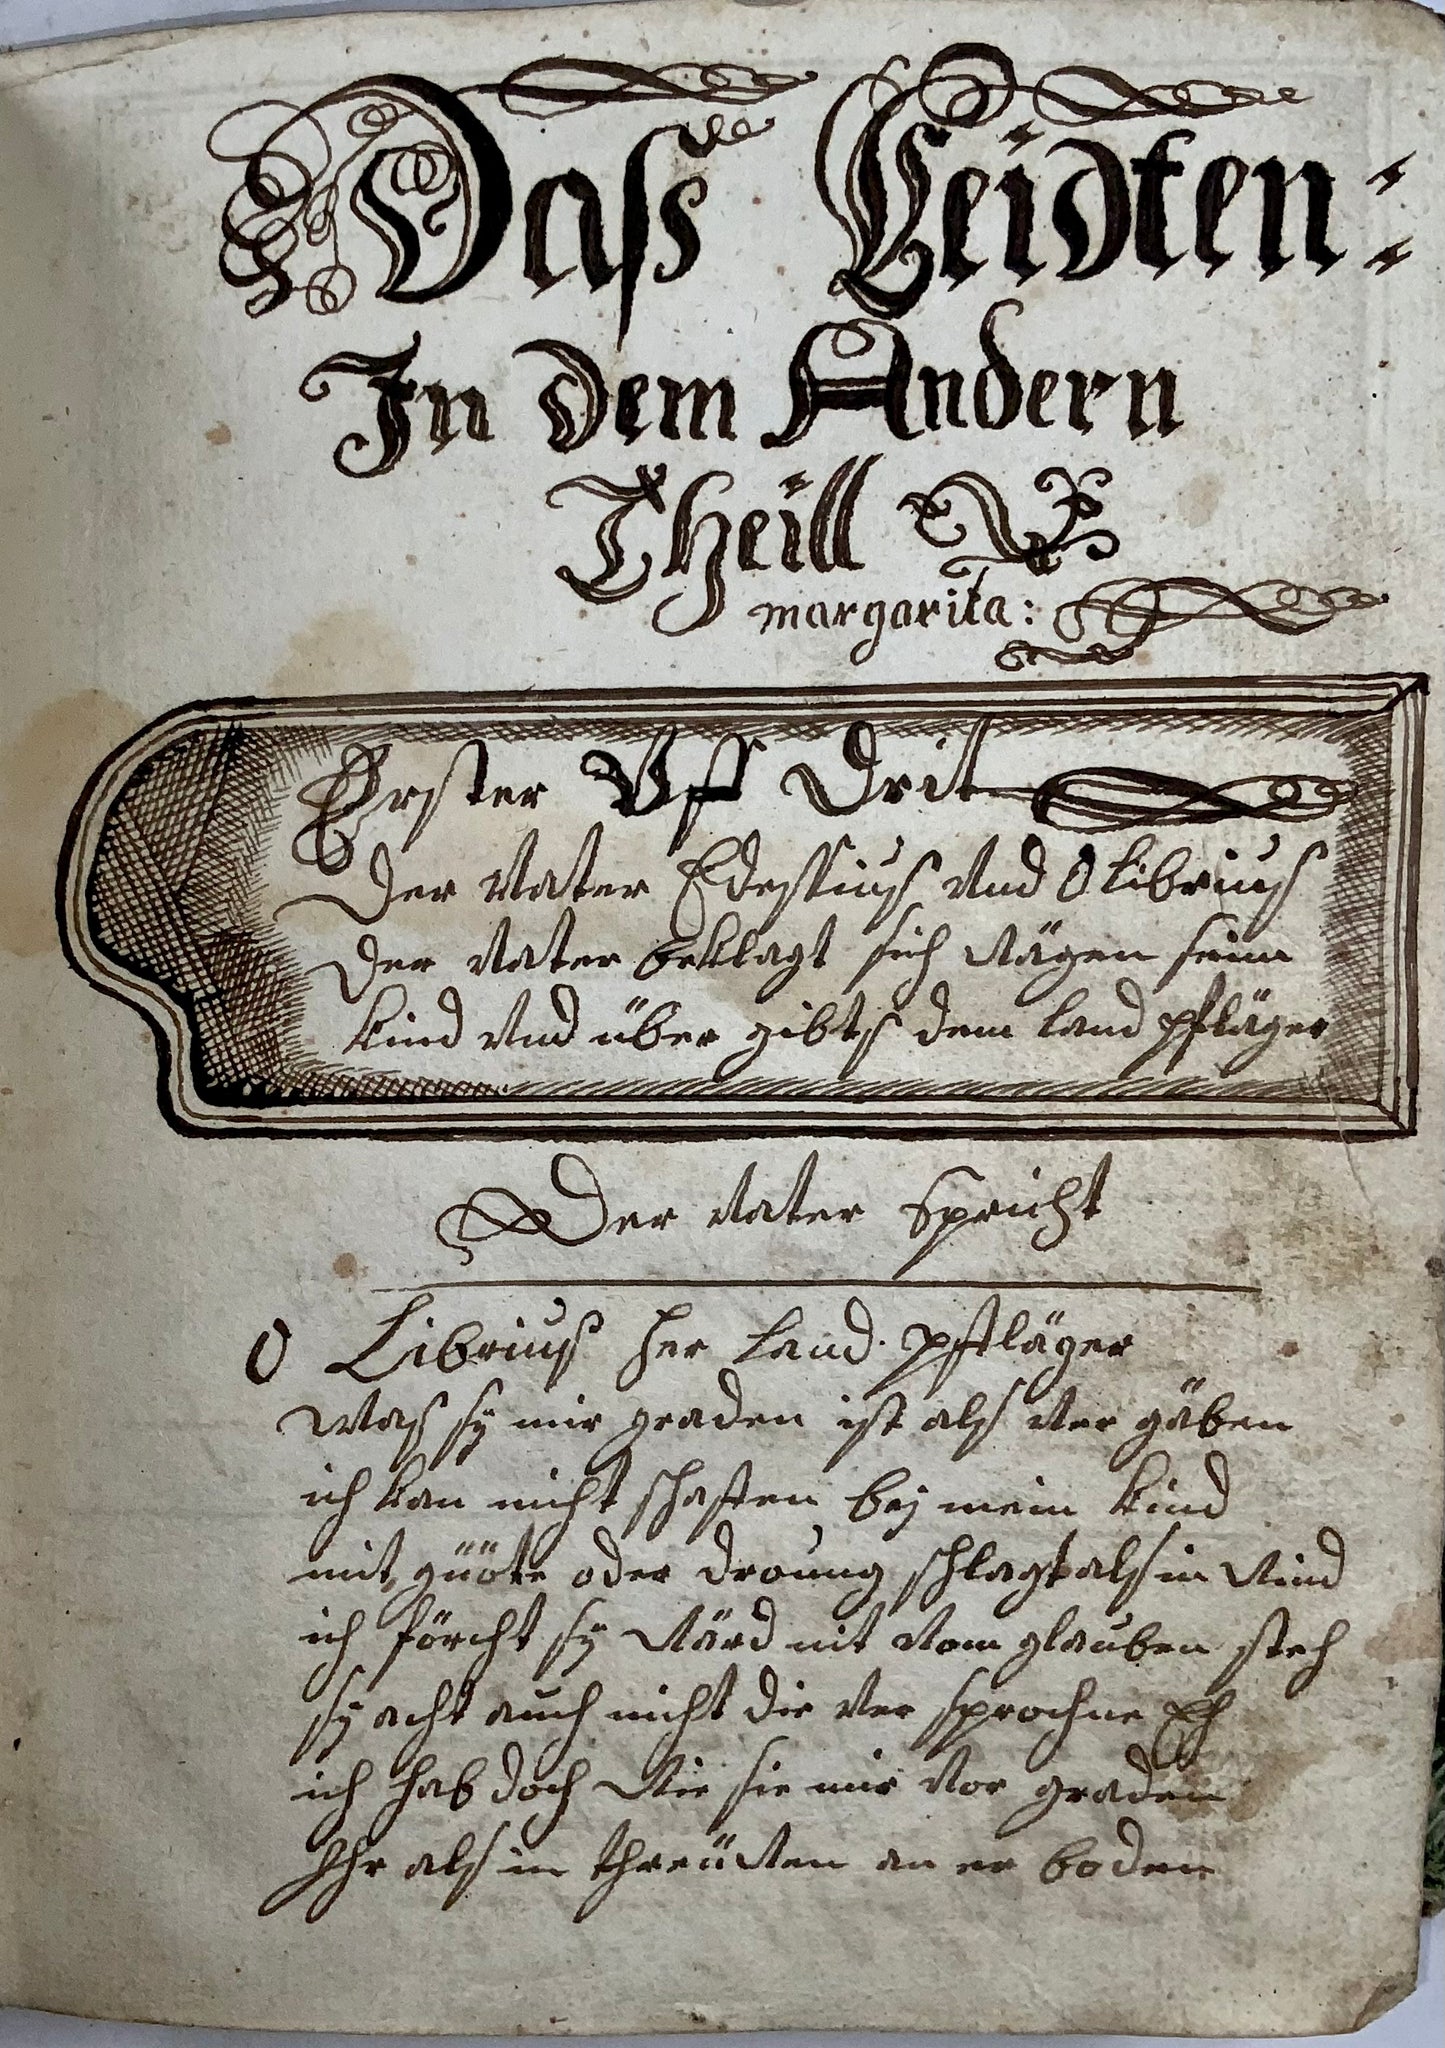 Daß Leidten:
In dem Andern
Theill
margarita:
Erster Uff Drit
Der Vater Edessius Vnd Olibrius
der Vater beklagt sich wägen seim
kind Vnd über gibts dem land pfläger
Der Vater Spricht
O Librius her land pfläger
was sy mir graden ist als ver gäben
ich kan nicht schaffen bej mein kind
mit güöte oder droung schlagt als in wind
ich förcht sy wärd nit vom glauben steh
sy acht auch nicht die ver sprochne Eh
ich hab doch wie sie mir vor graden
Ihr als in threüwen an er boden